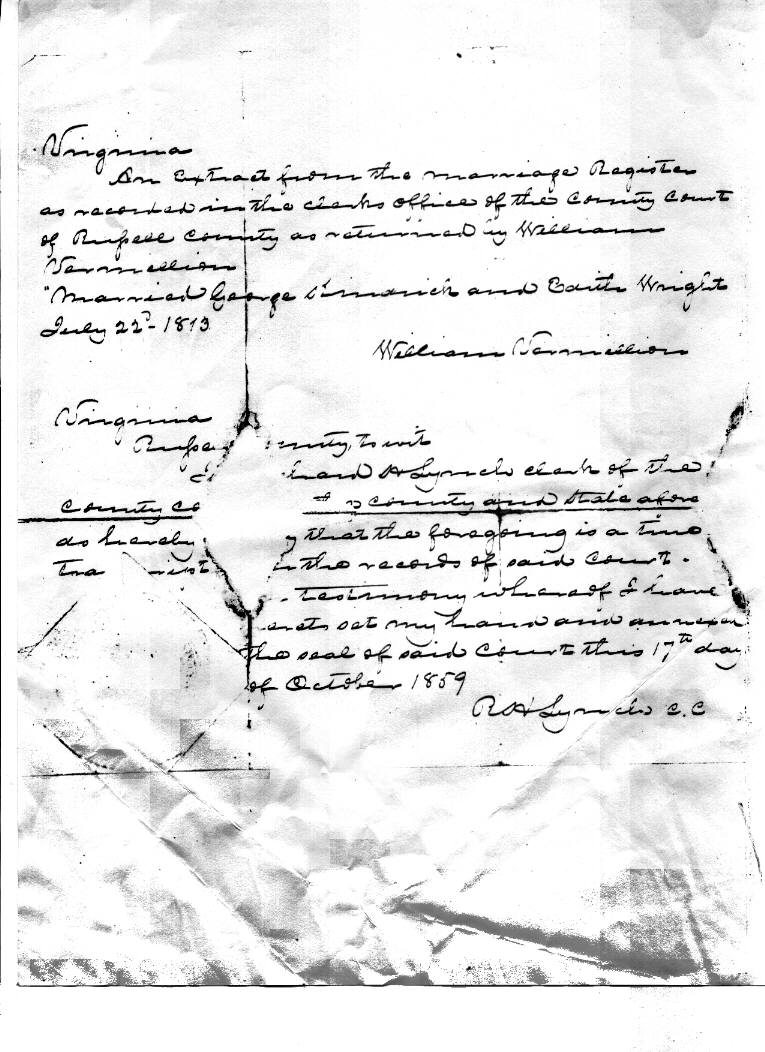 Virginia
An Extract from the marriage Register
as recorded in the clerks office of the County Court
of Russell County as returned by William
Vermillion
"Married George Kindrick and Edith Wright
July 22d - 1813
William Vermillion
Virginia
Russe unty, to wit
hard H Lynch clerk of the
County Co county and State afore
do hereby y that the foregoing is a true
Tra ript the records of said Court.
testimony whereof I have
unto set my hand and annexed
the seal of said Court this 17th day
of October 1859
R H Lynch C.C